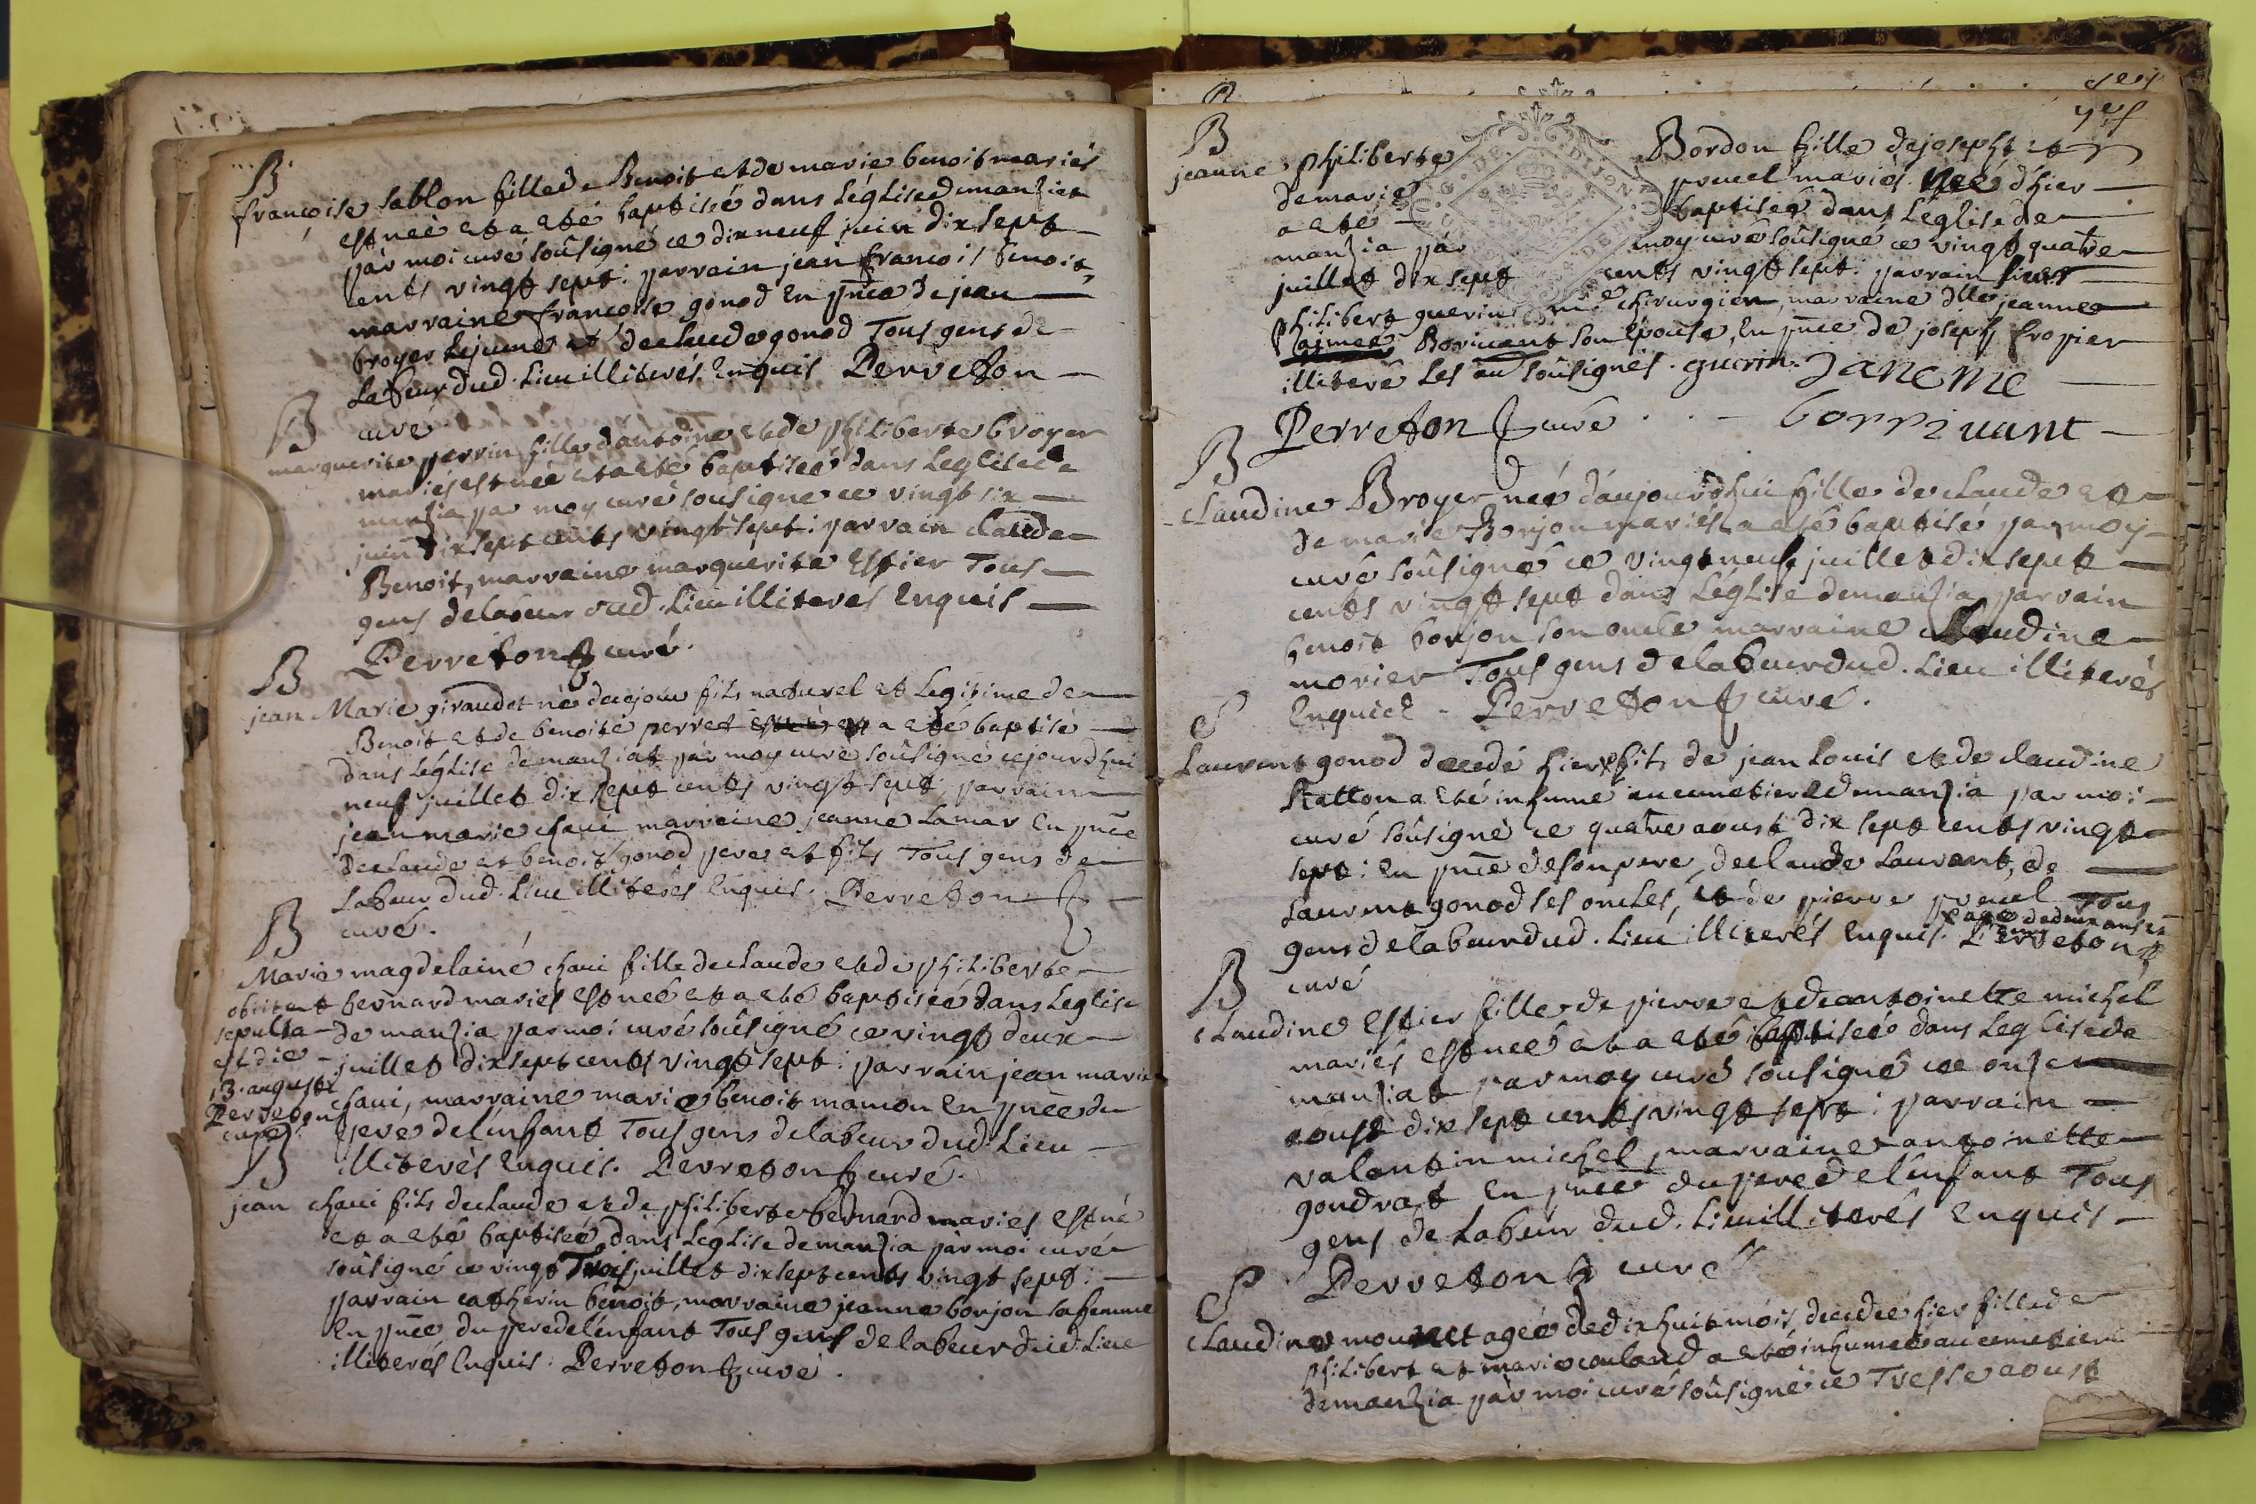 B
françoise sablon fille de Benoit et de marie benoit mariés
est neé et a eté baptisé dans Léglise de manziat
pàr moi curé soûsigné ce dix neuf juin dix sept
cents vingt sept : parrain jean francois benoit,
marraine francoise gonod En pñce de jean
broyer Lejeune et de claude gonod Tous gens de
Labeur dud. Lieu illiterés Enquis Perreton
curé
B
marguerite perrin fille d'antoine et de philiberte broyer
mariés est neé et a eté baptiseé dans Leglise de
manzia par moy curé soûsigné ce vingt six
juin dix sept cents vingt sept : parrain claude
Benoit, marraine marguerite Estier Tous
gens de labeur dud. Lieu illiterés Enquis
Perreton curé.
B
jean Marie giraudet né de cejour fils naturel et Legitime de
Benoit et de benoite perret a eté baptisé
dans Léglise de manziat pàr moy curé soûsigné cejourdhui
neuf juillet dix sept cents vingt sept ; parrain
jean marie chaui marraine jeanne Lamar En pñce
de claude et benoit gonod pere et fils Tous gens de
Labeur dud. Lieu illiterés Enquis. Perreton
curé.
B
Marie magdelaine chaui fille de claude et de philiberte
obiit et bernard mariés est neé et a eté baptiseé dans Leglise
sepulta de manzia par moi curé soûsigné ce vingt deux
est die juillet dix sept cents vingt sept : parrain jean marie
13. augusti chaui, marraine marie benoit mamon En pñce du
Perreton curé pere de l'enfant Tous gens de labeur dud. Lieu
illiterés Enquis. Perreton curé.
B
jean chaui fils de claude et de philiberte bernard mariés est né
et a eté baptiseé dans Léglise de manzia pàr moi curé
soûsigné ce vingt Trois juillet dix sept cents vingt sept :
parrain catherin benoit, marraine jeanne borjon sa femme
En pñce du pere de l'enfant Tous gens de labeur dud. Lieu
illiterés Enquis : Perreton curé.
B
jeanne philiberte Bordon fille de joseph et
de marie pruel mariés Neé d'hier
a eté baptiseé dans Léglise de
manzia pàr moy curé soûsigné ce vingt quatre
juillet dix sept cents vingt sept : parrain sieur
philibert guerin me chirurgien, marraine dlle jeanne
Borivant son Epouse, En pñce de joseph fropier
illiteré Les soûsignés. guerin. Janeme
Perreton curé . . - borrivant
B
claudine Broyer neé d'aujourdhui fille de claude et
de marie Borjon mariés a eté baptisé par moy
curé soûsigné ce vingt neuf juillet dix sept
cents vingt sept dans Léglise de manzia parrain
benoit borjon son oncle marraine claudine
morier Tous gens de labeur dud. Lieu illiterés
Enquis - Perreton curé.
S
Laurent gonod decedé hier fils de jean Louis et de claudine
a eté inhumé au cimetiere de manzia par moi
curé soûsigné ce quatre aoust dix sept cents vingt
sept : En pñce de son pere, de claude Laurent, de
Laurent gonod ses oncles, et de pierre pruel Tous
agé de deux ans
gens de labeur dud. Lieu illiterés Enquis. Perreton
curé
B
claudine Estier fille de pierre et de antoinette michel
mariés est neé et a eté baptiseé dans Leglise de
manziat par moy curé soûsigné ce onze
aoust dix sept cents vingt sept : parrain
valantin michel, marraine antoinette
goudrat En pñce du pere de l'enfant Tous
gens de Labeur dud. Lieu illiterés Enquis
Perreton curé
S
claudine agée de dix huit mois decedeé hier fille de
philibert et marie couland a eté inhumeé au cimetiere
de manzia pàr moi curé soûsigné ce Treise aoust